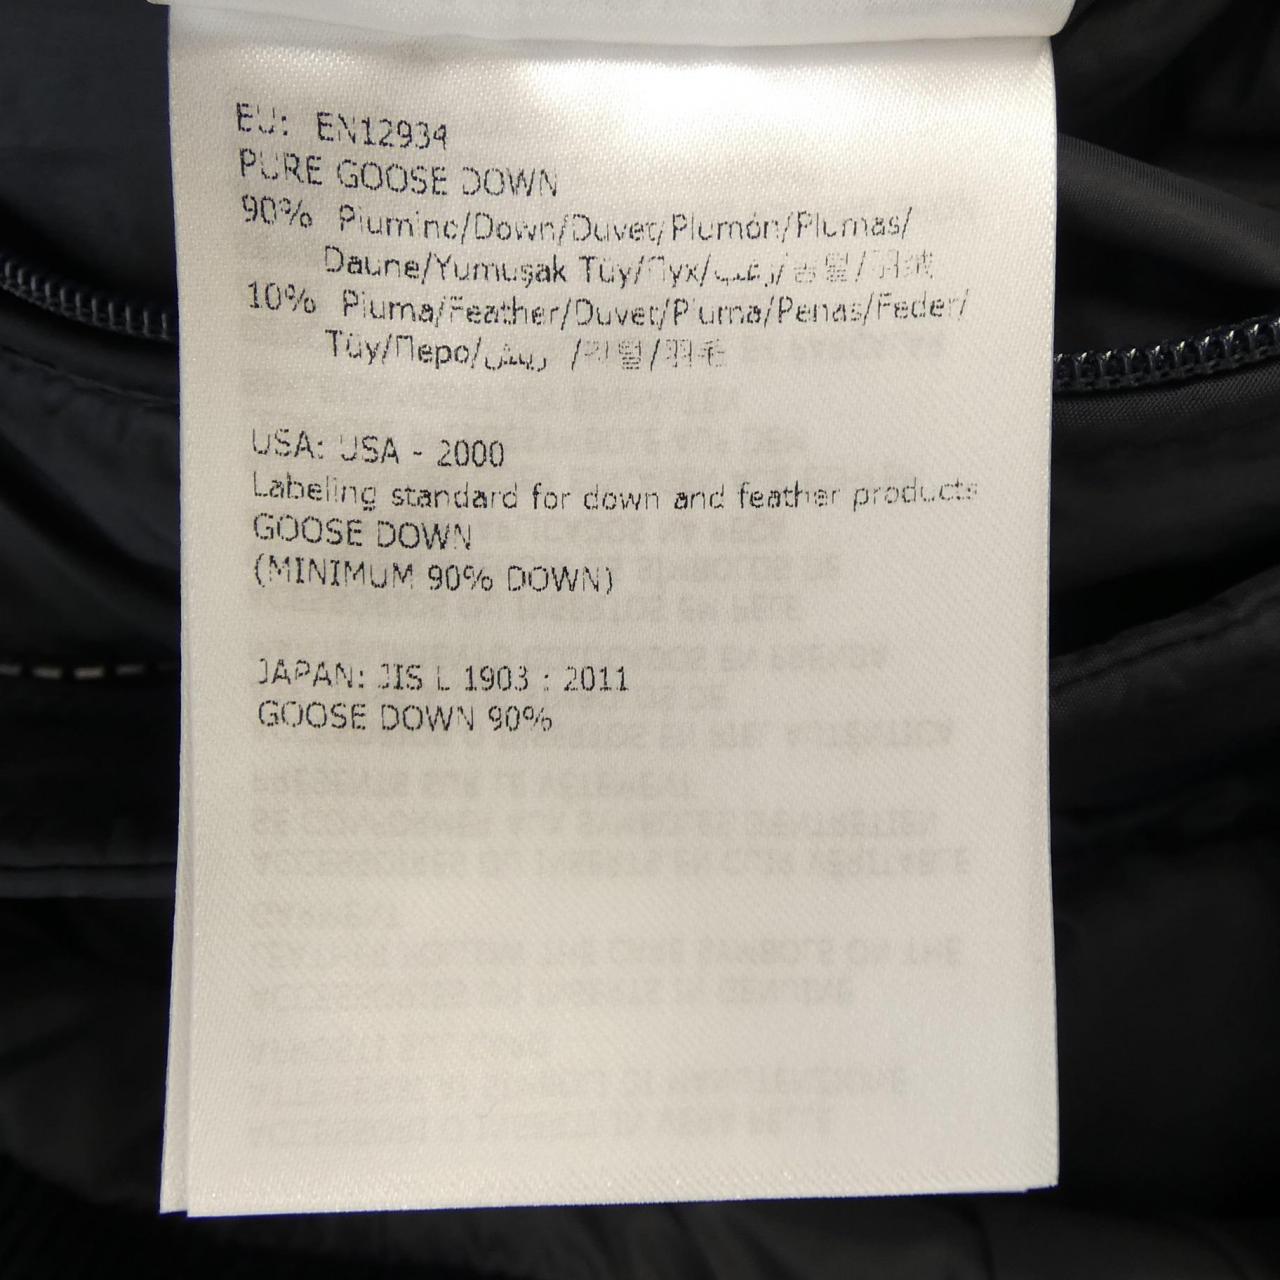 EU: EN12934
PURE GOOSE DOWN
90% Piumino/Down/Duvet/Plumón/Plumas/
Daune/Yumuşak Tüy/Пух/زغب/솜털/羽绒
10% Piuma/Feather/Duvet/Pluma/Penas/Feder/
Tüy/Перо/ريش /깃털/羽毛
USA: USA - 2000
Labeling standard for down and feather products
GOOSE DOWN
(MINIMUM 90% DOWN)
JAPAN: JIS L 1903 : 2011
GOOSE DOWN 90%